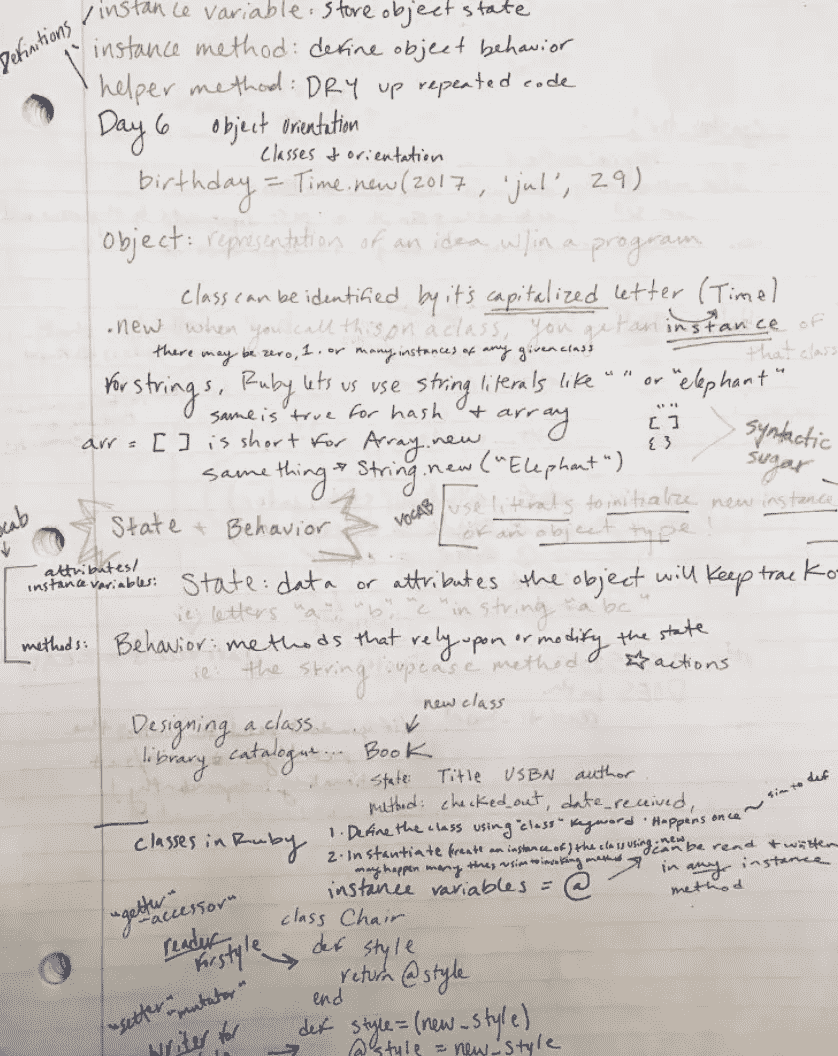 instance variable: store object state
Definitions
instance method: define object behavior
helper method: DRY up repeated code
Day 6 Object Orientation
Classes + orientation
birthday = Time.new(2017, 'jul', 29)
Object: representation of an idea w/in a program
Class can be identified by it's capitalized letter (Time)
.new when you call this on a class, you get an instance of that class
there may be zero, 1. or many instances of any given class
For strings, Ruby lets us use string literals like " " or "elephant"
same is true for hash + array
" "
[ ]
{ }
syntactic sugar
arr = [ ] is short for Array.new
same thing → String.new ("Elephant")
State + Behavior
vocab
use literals to initialize new instance
of an object type!
attributes/
instance variables: State: data or attributes the object will keep track o
ie: letters "a", "b", "c" in string "abc"
methods: Behavior: methods that rely upon or modify the state
ie: the string upcase method ☆ actions
new class
Designing a class
library catalogue... Book
state: Title USBN author
method: checked_out, date_received,
classes in Ruby 1. Define the class using "class" keyword. Happens once ~ sim to def
2. Instantiate (create an instance of) the class using .new
may happen many times ~ sim to invoking method
instance variables = @ → can be read + written
in any instance
method
"getter"
-accessor"
class Chair
reader
for style → def style
return @style
end
"setter"-mutator"
writer for → def style=(new_style)
@style = new_style